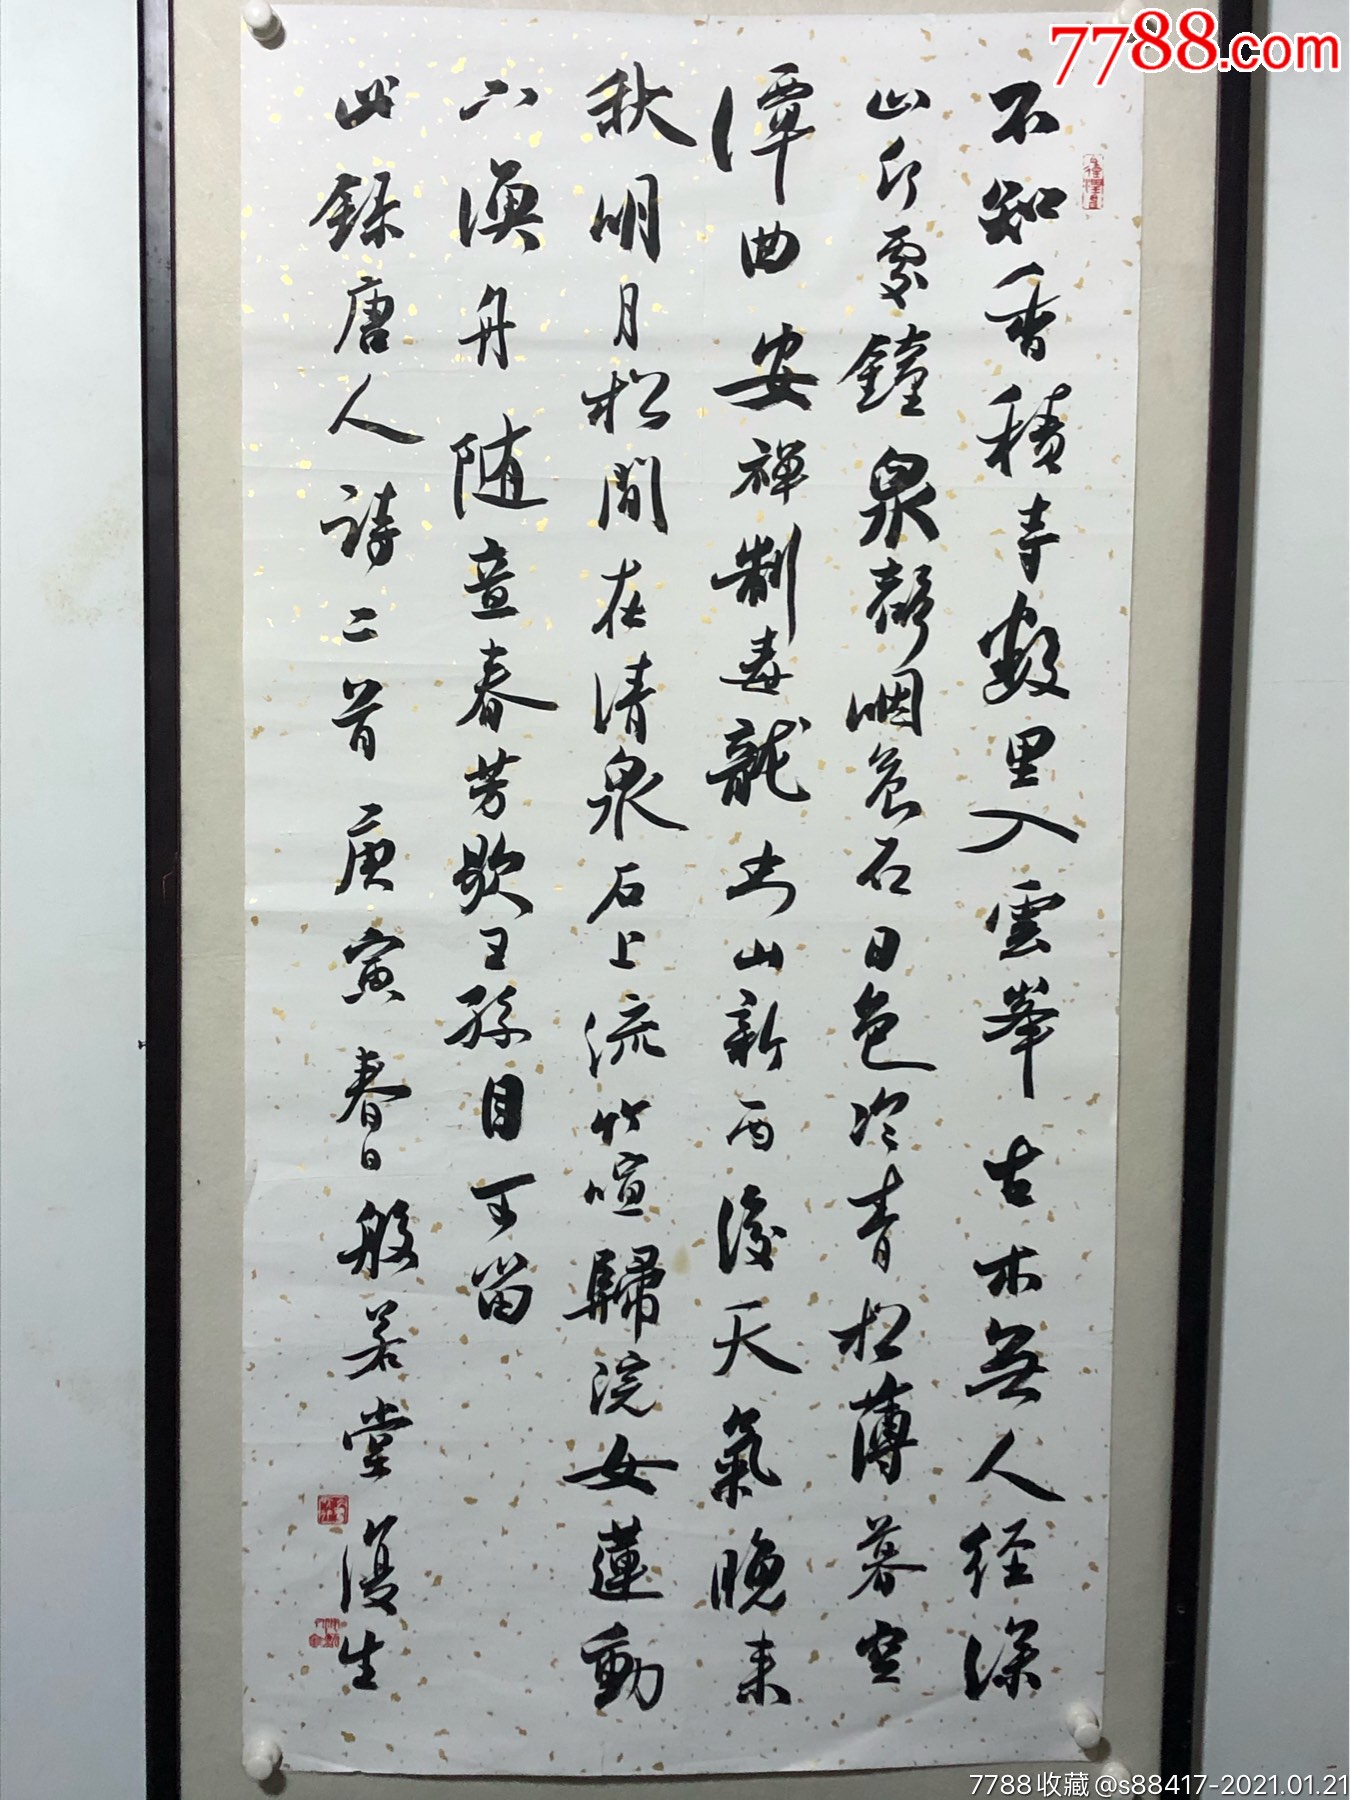 7788.com
不知香積寺數里入雲峯古木無人径深
山何處鐘泉聲咽危石日色冷青松薄暮空
潭曲安禪制毒龍空山新雨後天氣晚来
秋明月松間在清泉石上流竹喧歸浣女蓮動
下漁舟随意春芳歇王孫自可留
此錄唐人詩二首庚寅春日般若堂復生
7788收藏@s88417-2021.01.21